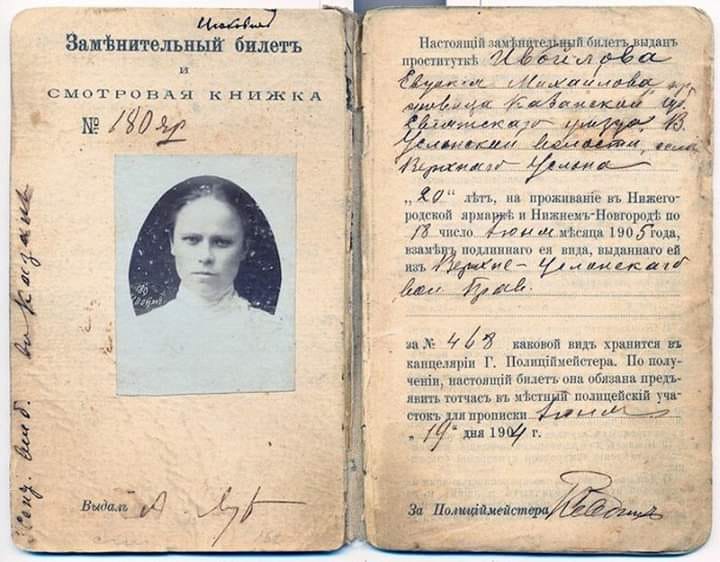 Замѣнительный билетъ
и
СМОТРОВАЯ КНИЖКА
№ 180 яр
Выдалъ
Настоящій замѣнительный билетъ выданъ
проституткѣ
Михайлова
Казанской губ.
уѣзда, В.
Услонской волости, села
Верхняго Услона
„20“ лѣтъ, на проживаніе въ Нижего-
родской ярмаркѣ и Нижнемъ-Новгородѣ по
18 число Іюня мѣсяца 1905 года,
взамѣнъ подлиннаго ея вида, выданнаго ей
изъ Верхне-Услонскаго
вол Прав.
за № 468 каковой видъ хранится въ
канцеляріи Г. Полиціймейстера. По полу-
ченіи, настоящій билетъ она обязана предъ-
явить тотчасъ въ мѣстный полицейскій уча-
стокъ для прописки Іюня
„19“ дня 1904 г.
За Полиціймейстера